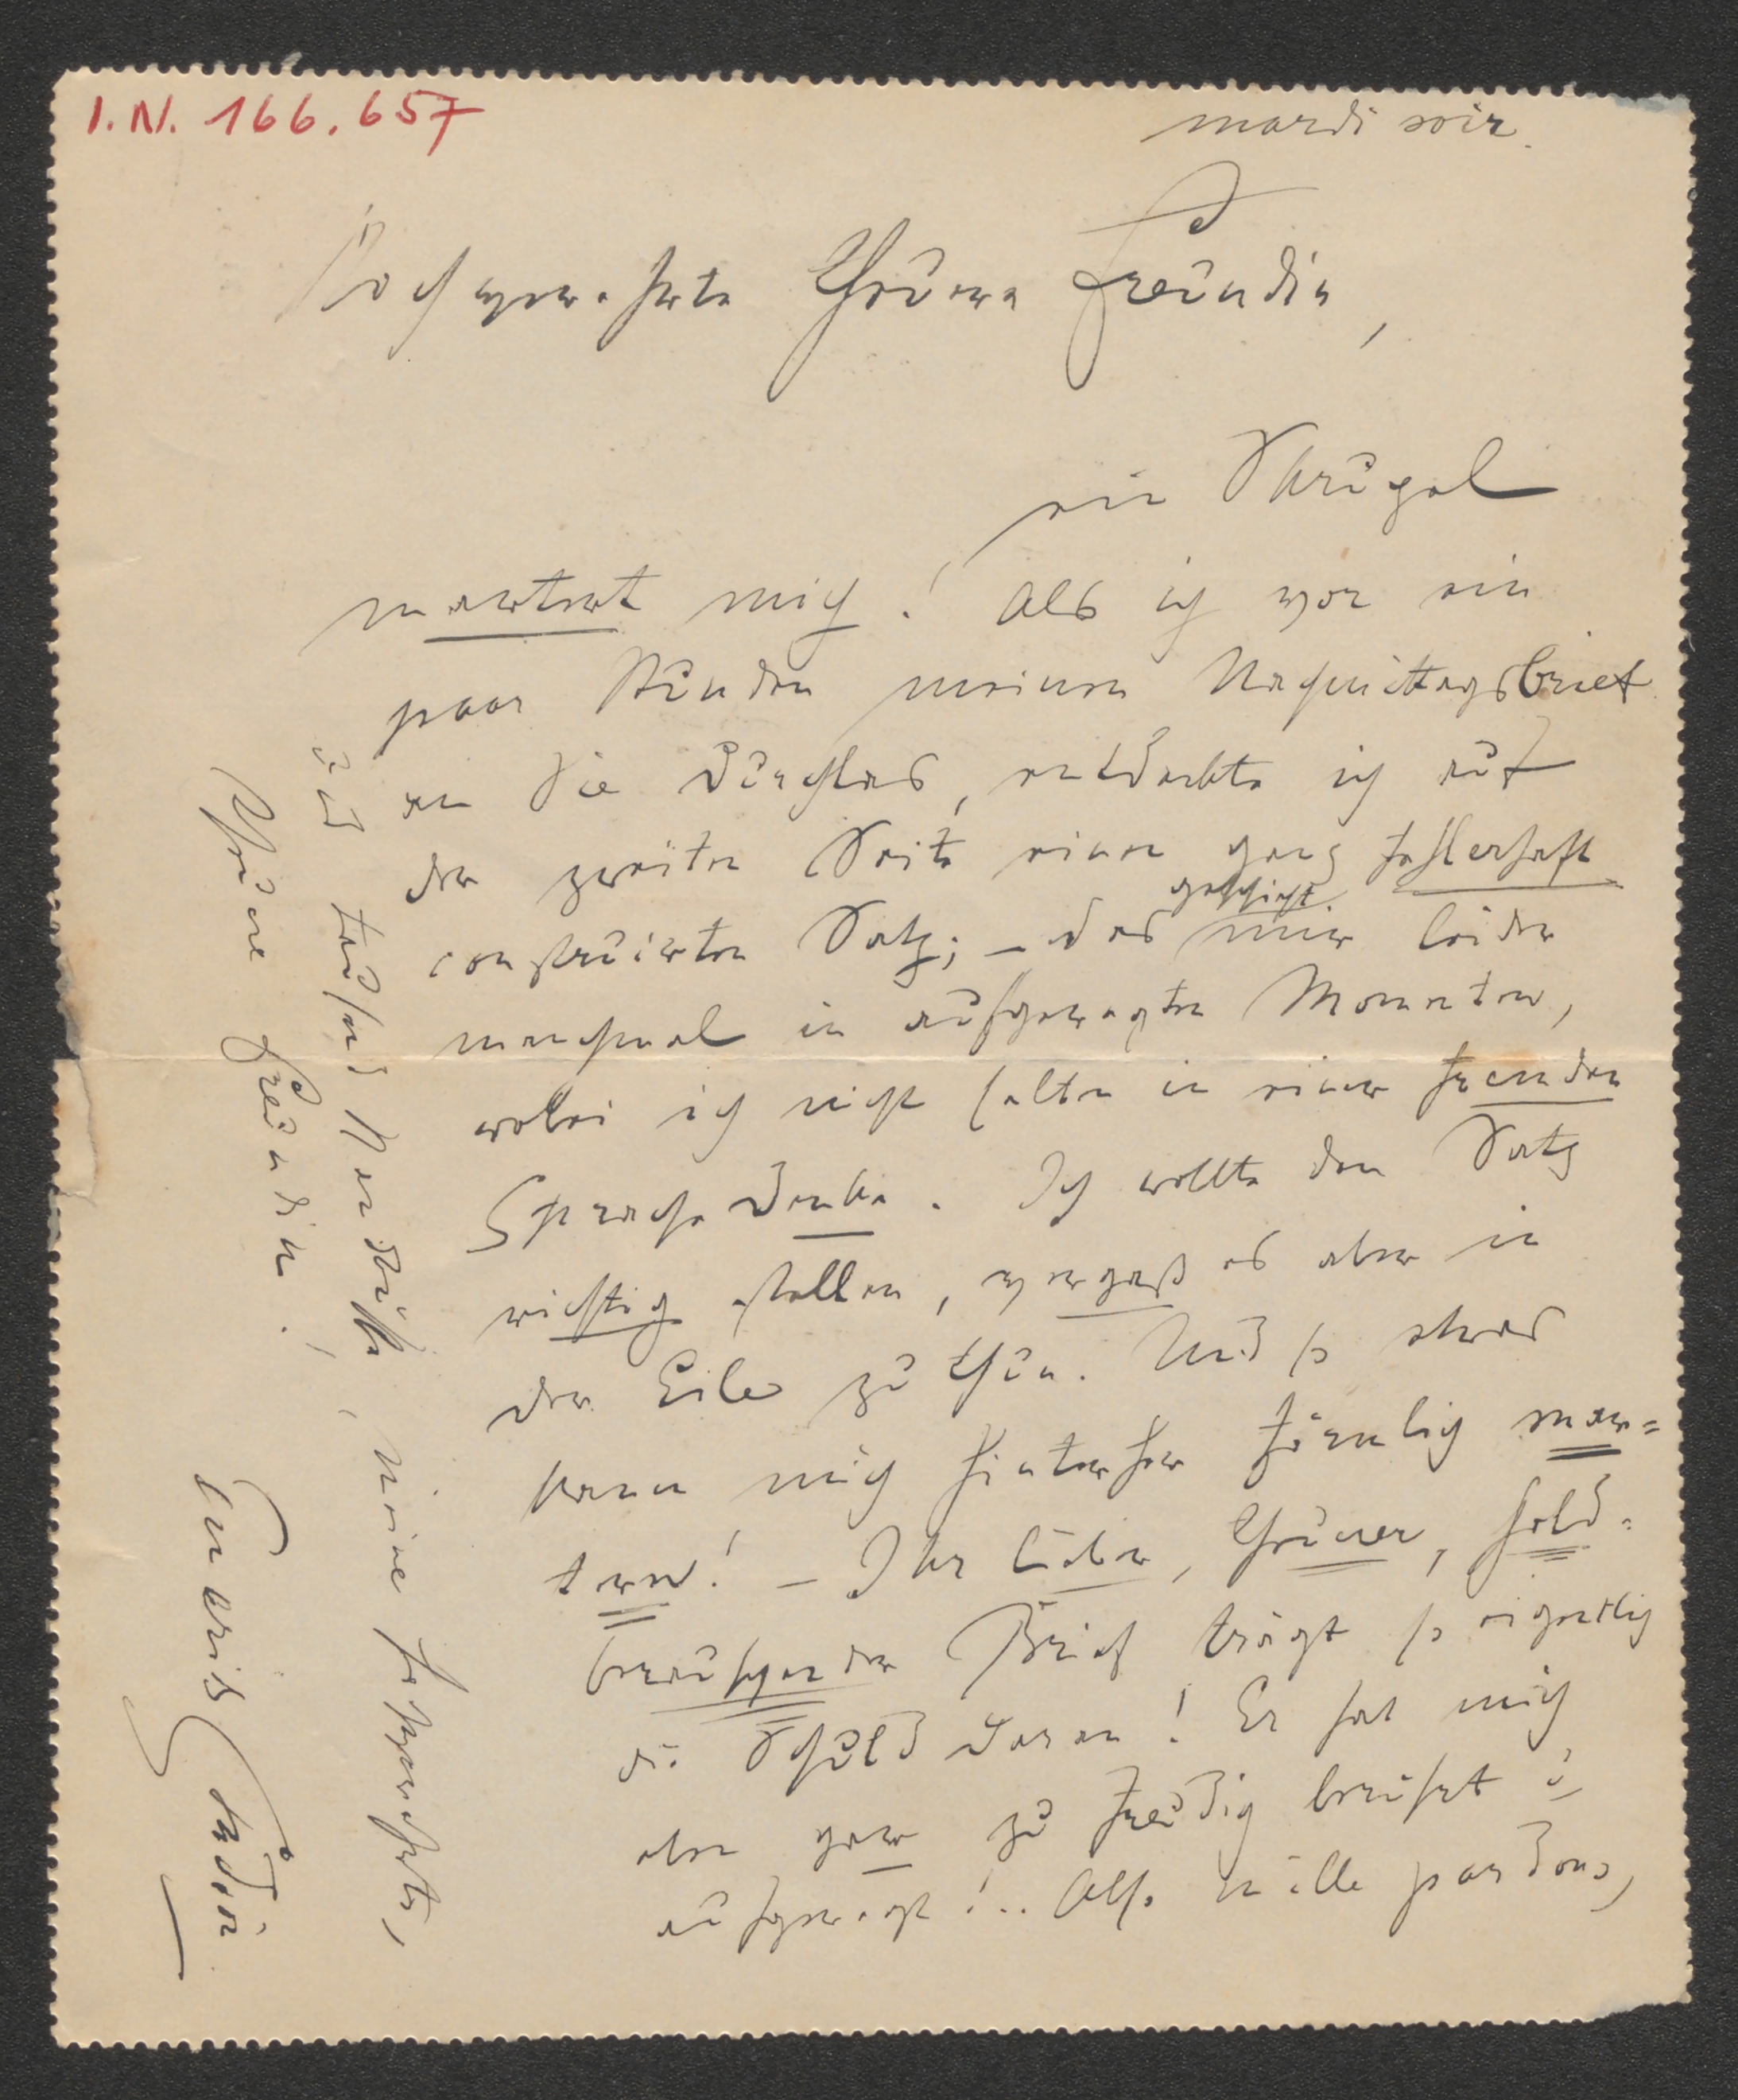 I.N. 166.657
mardi soir.
Hochverehrte theuere Freundin,
ein Skrupel
martert mich! Als ich vor ein
paar Stunden meinen Nachmittagsbrief
an Sie durchlas, entdeckte ich auf
der zweiten Seite einen ganz fehlerhaft
construirten Satz; – das geschieht mir leider
manchmal in aufgeregten Momenten,
wobei ich nicht selten in einer fremden
Sprache denke. Ich wollte den Satz
richtig stellen, vergaß es aber in
der Eile zu thun. Und so etwas
kann mich hinterher förmlich mar=
tern! – Ihr lieber, theurer, hold=
berauschender Brief trägt so eigentlich
die Schuld daran! Er hat mich
eben gar zu freudig berührt u
aufgeregt!.. Also mille pardons,
und tausend Handküsse, meine hochverehrte,
schöne Freundin!
Emerich